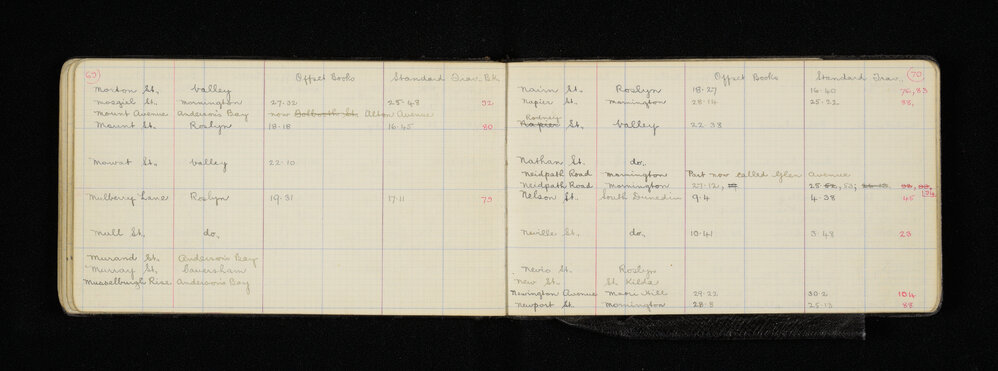 69 Offset Books Standard Trav. Bk.
Morton St. Valley
Mosgiel St. Mornington 27-32 25-48 92
Mount Avenue Anderson's Bay now St. Alton Avenue
Mount St. Roslyn 18-18 16-45 80
Mowat St. Valley 22-10
Mulberry Lane Roslyn 19-31 17-11 79
Mull St. do.
Murand St. Anderson's Bay
Murray St. Caversham
Musselburgh Rise Anderson's Bay
Offset Books Standard Trav. 70
Nairn St. Roslyn 18-27 16-40 75, 83
Napier St. Mornington 28-14 25-22 88,
Rodney
Napier St. Valley 22-38
Nathan St. do.
Neidpath Road Mornington Part now called Glen Avenue
Neidpath Road Mornington 27-12, 25-52, 53;
94
Nelson St. South Dunedin 9-4 4-38 45
Neville St. do. 10-41 3-48 23
Nevis St. Roslyn
New St. St. Kilda
Newington Avenue Maori Hill 29-22 30-2 104
Newport St. Mornington 28-8 25-13 88